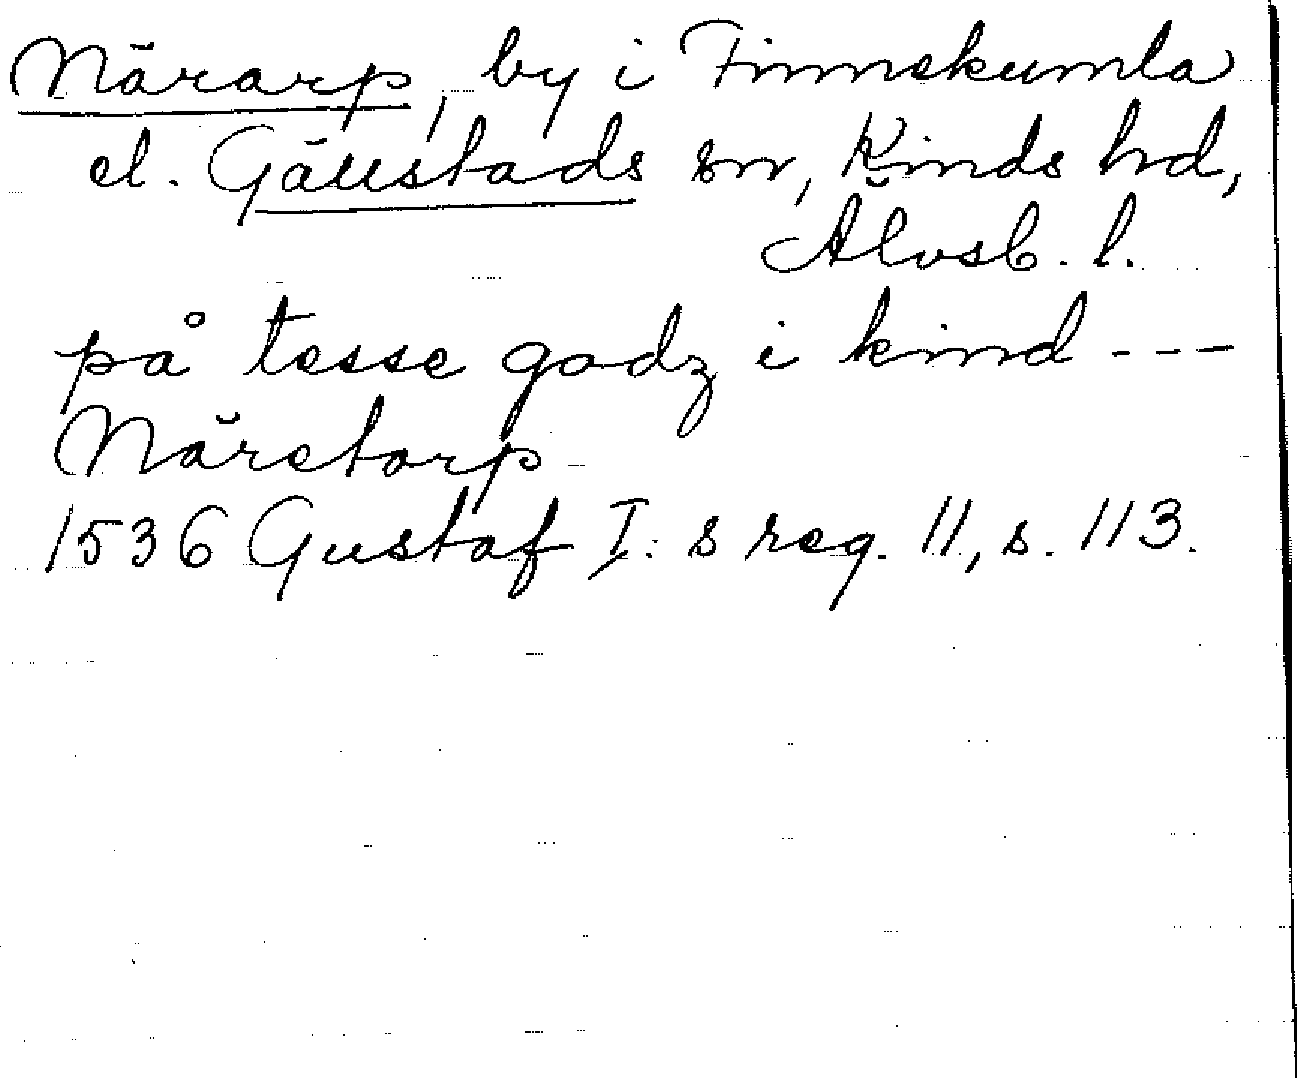 Närarp, by i Finnekumla
el. Gällstads sn, Kinds hd,
Älvsb. l.
på tesse godz i kind ---
Näretorp
1536 Gustaf I: s reg. 11, s. 113.